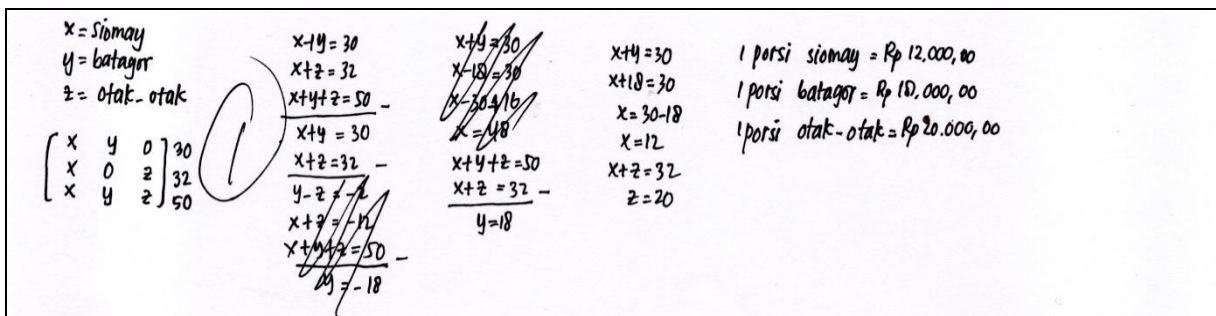 x = Siomay
y = batagor
z = otak-otak
x y 0 30
x 0 z 32
x y z 50
1
x+y = 30
x+z = 32
x+y+z = 50 -
x+y = 30
x+z = 32 -
y-z = -2
x+z = -12
x+y+z = 50 -
y = -18
x+y = 30
x-18 = 30
x = 48
x+y+z = 50
x+z = 32 -
y = 18
x+y = 30
x+18 = 30
x = 30-18
x = 12
x+z = 32
z = 20
1 porsi siomay = Rp 12.000,00
1 porsi batagor = Rp 18.000,00
1 porsi otak-otak = Rp 20.000,00